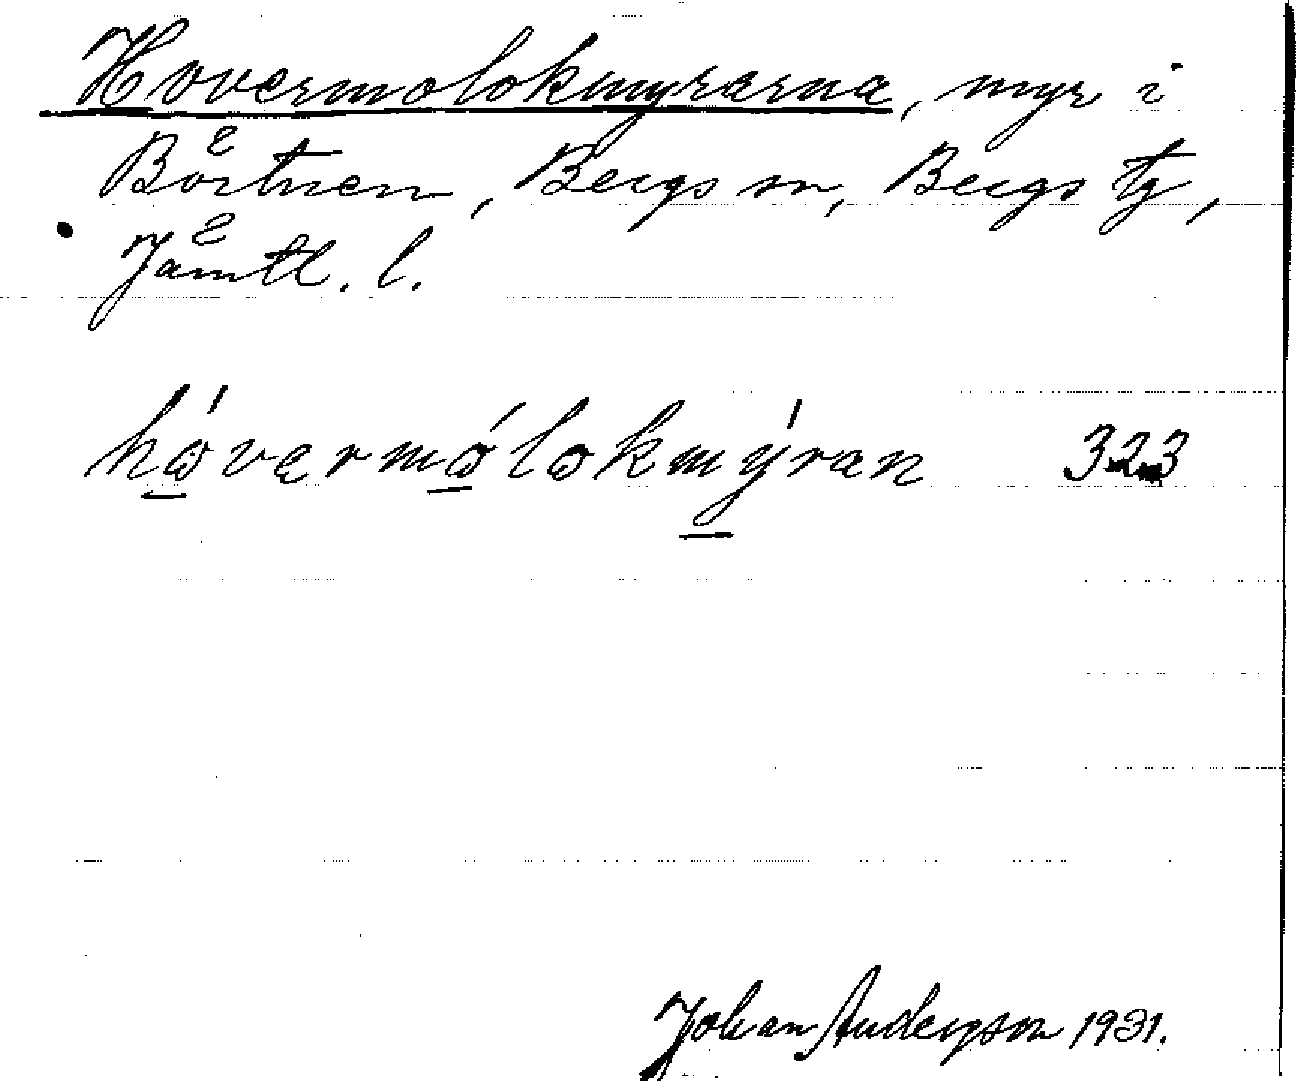 Hovermolokmyrarna, myr i
Börtnen, Bergs sn, Bergs tg,
Jämtl. l.
hó̱vermó̱lokmý̱ran 323
Johan Anderson 1931.